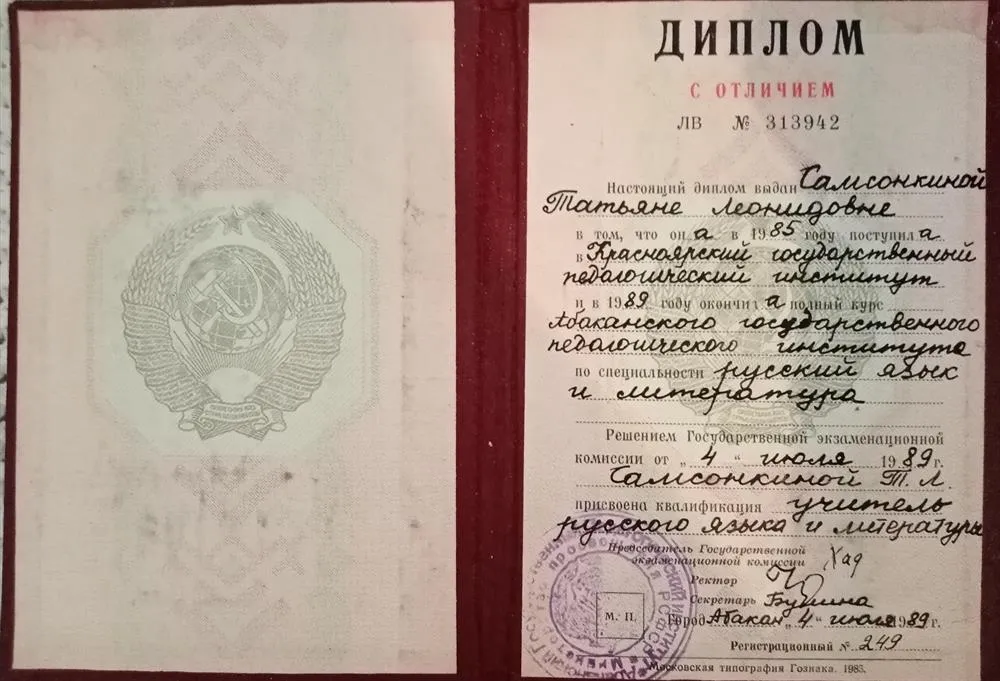 ДИПЛОМ
С ОТЛИЧИЕМ
ЛВ № 313942
Настоящий диплом выдан Самсонкиной
Татьяне Леонидовне
в том, что он а в 1985 году поступил а
в Красноярский государственный
педагогический институт
и в 1989 году окончил а полный курс
Абаканского государственного
педагогического института
по специальности русский язык
и литература
Решением Государственной экзаменационной
комиссии от „ 4 “ июля 1989 г.
Самсонкиной Т. Л.
присвоена квалификация учитель
русского языка и литературы
Председатель Государственной
экзаменационной комиссии
Ректор
Секретарь
М. П.
Город Абакан „ 4 “ июля 1989 г.
Регистрационный № 249
Московская типография Гознака. 1983.